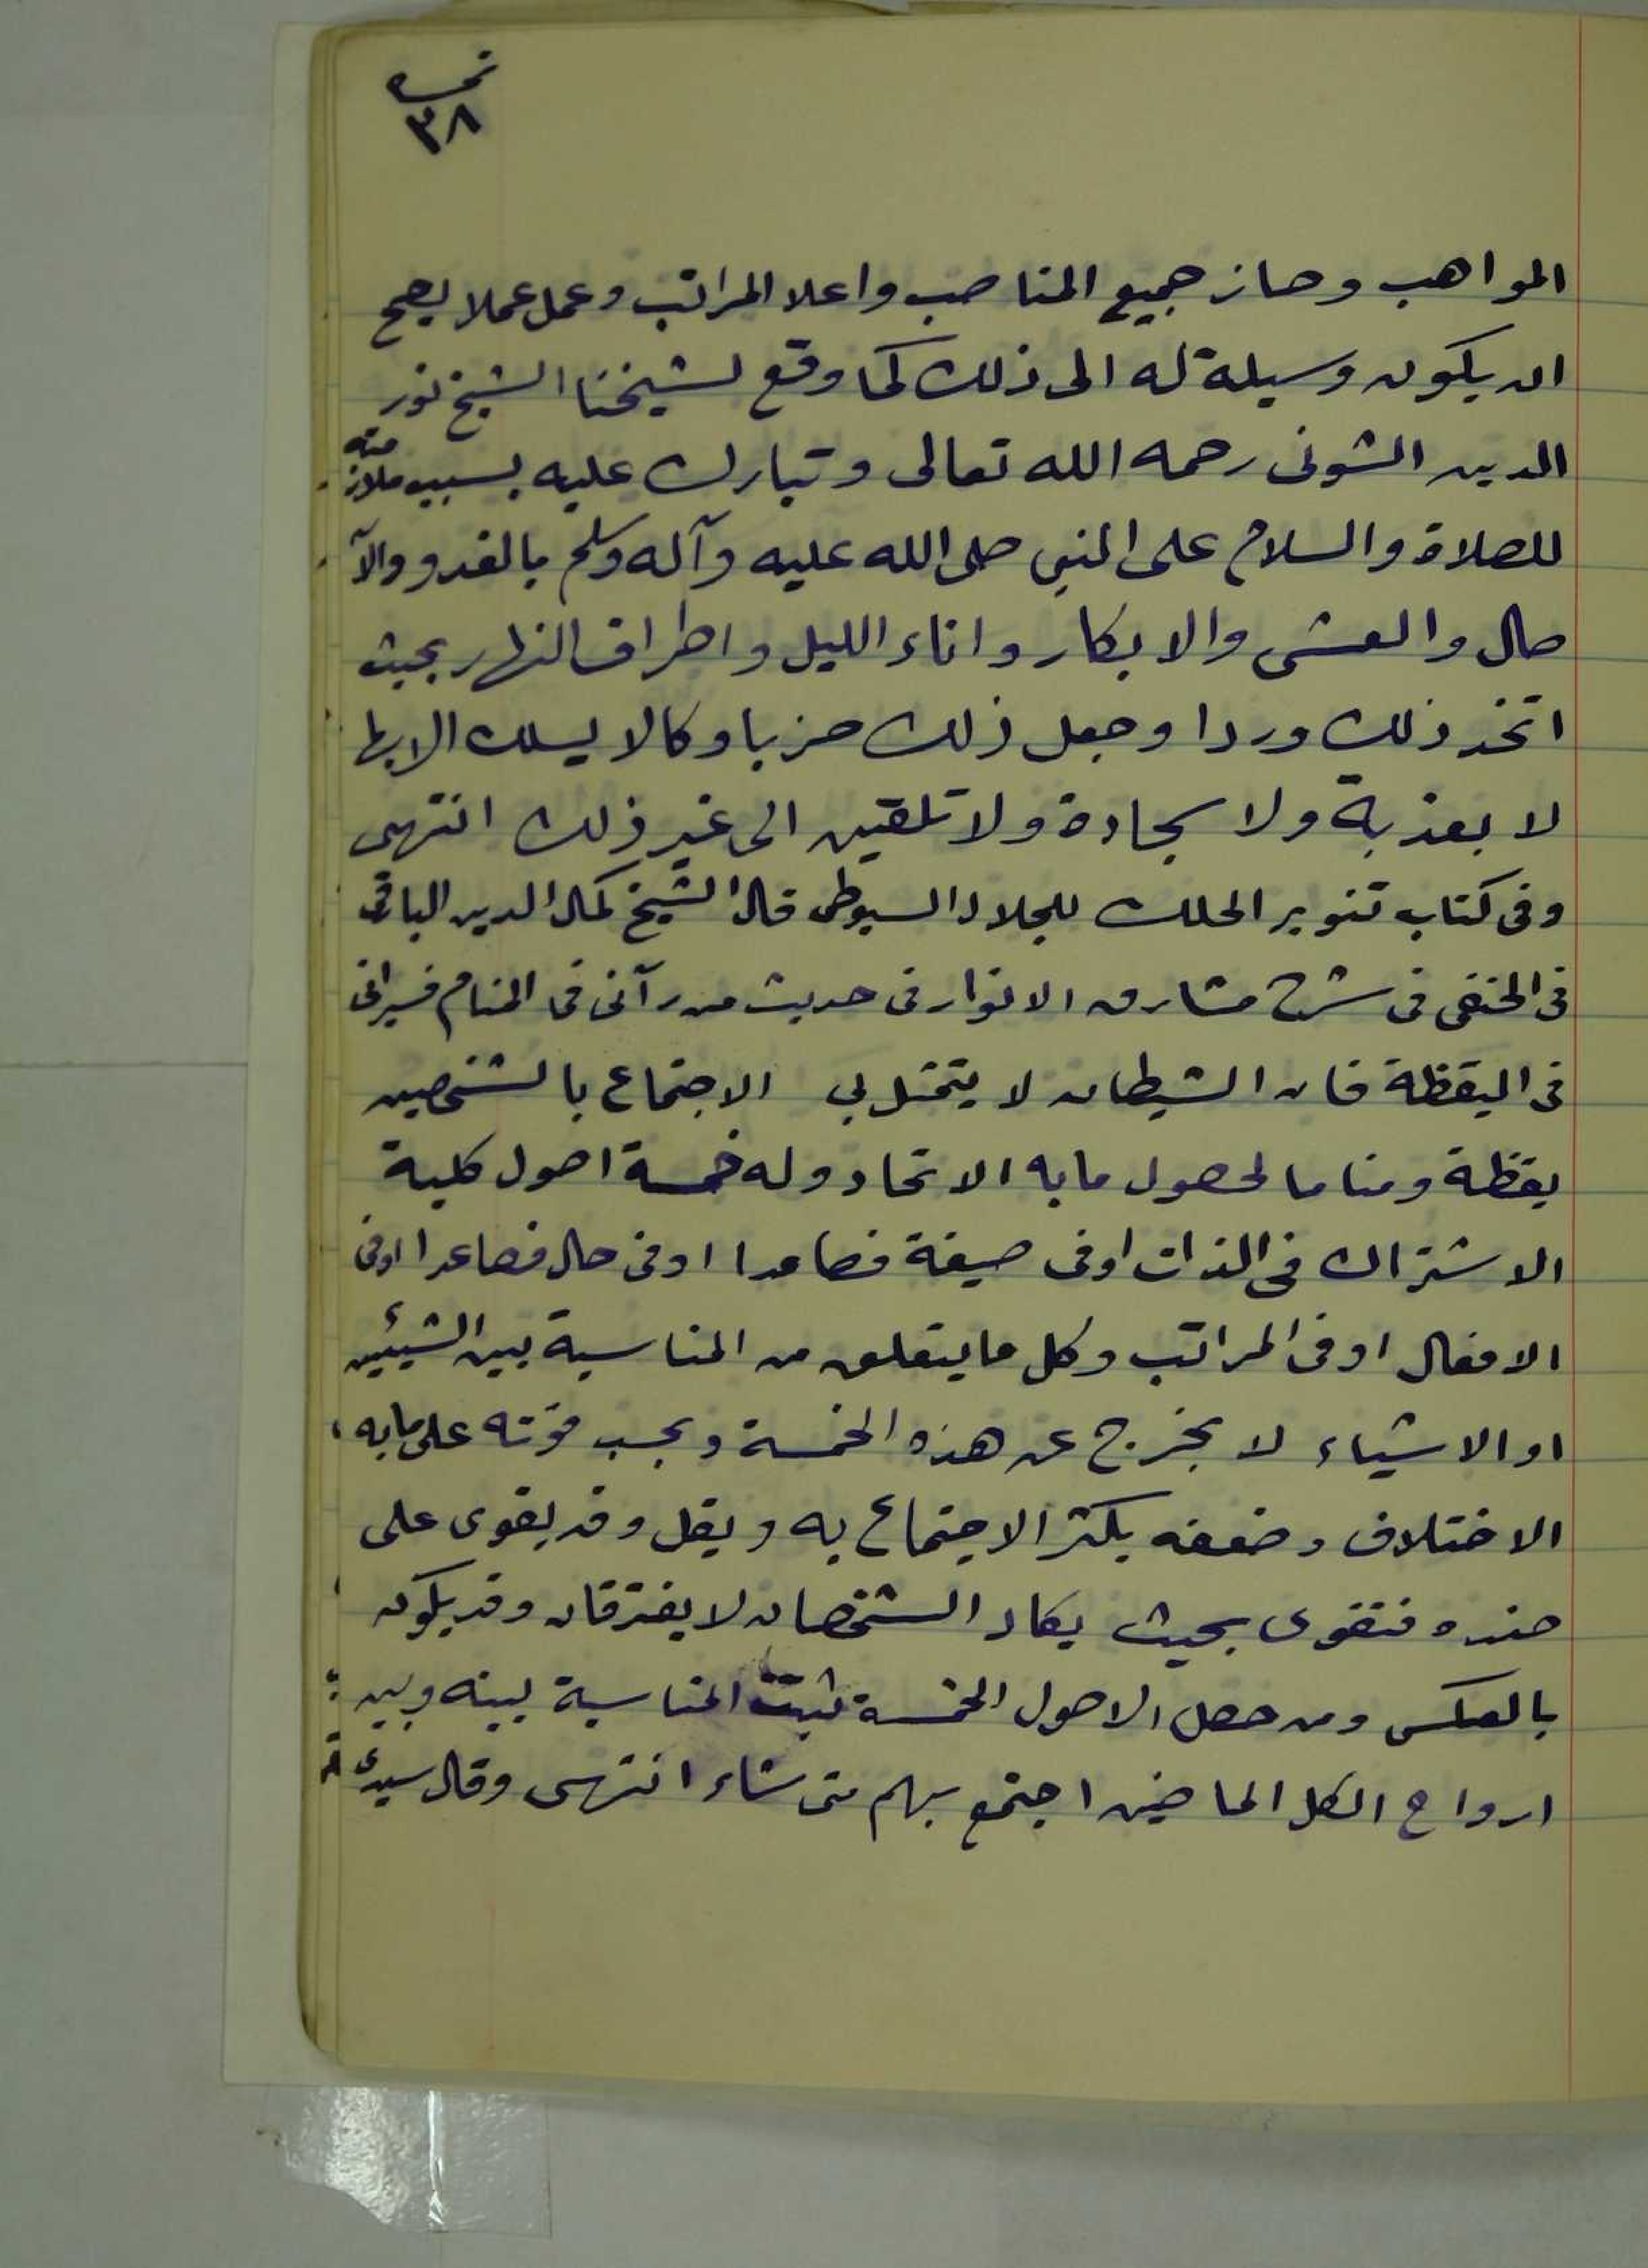 نمره
٣٨
المواهب وحاز جميع المناصب واعلا المراتب وعمل عملا يصح
ان يكون وسيلة له الى ذلك كما وقع لشيخنا الشيخ نور
الدين الشونى رحمه الله تعالى وتبارك عليه بسبب ملازمته
للصلاة والسلام على النبى صلى الله عليه وآله وسلم بالغدو والآ
صال والعشى والابكار واناء الليل واطراف النهار بحيث
اتخذ ذلك وردا وجعل ذلك حزبا وكالا يسلك الا بها
لا بعذبة ولا سجادة ولا تلقين الى غير ذلك انتهى
وفى كتاب تنوير الحلك للجلال السيوطى قال الشيخ كمال الدين الباقى
فى الحنفى فى شرح مشارق الانوار فى حديث من رآنى فى المنام فسيرانى
فى اليقظة فان الشيطان لا يتمثل بى الاجتماع بالشخصين
يقظة ومناما لحصول مابه الاتحاد وله خمسة اصول كلية
الاشتراك فى الذات اوفى صيفة فصاعدا اوفى حال فصاعدا اوفى
الافعال اوفى المراتب وكل مايتعلق من المناسبة بين الشيئين
او الاشياء لا يخرج عن هذه الخمسة وبحسب قوته على مابه
الاختلاف وضعفه يكثر الاجتماع به ويقل وقد يقوى على
ضده فتقوى بحيث يكاد الشخصان لا يفترقان وقد يكون
بالعكس ومن حصل الاصول الخمسة ثبتت المناسبة بينه وبين
ارواح الكل الماضين اجتمع بهم متى شاء انتهى وقال سيدى